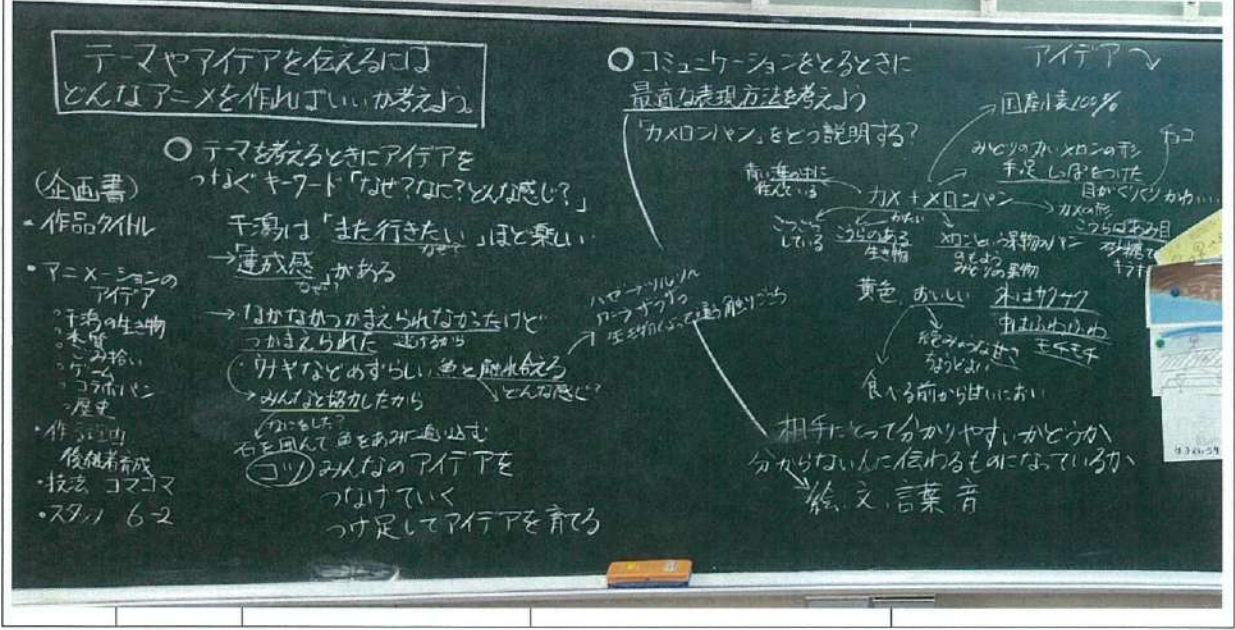 テーマやアイデアを伝えるには
どんなアニメを作ればいいか考えよう。
(企画書)
・作品タイトル
・アニメーションの
アイデア
○干潟の生き物
○ごみ拾い
○ゲーム
○コラボパン
○歴史
・作る理由
後継者育成
・技法 コマコマ
・スタッフ 6-2
○テーマを考えるときにアイデアを
つなぐキーワード「なぜ?なに?どんな感じ?」
干潟は「また行きたい」ほど楽しい
なぜ?
→「達成感」がある
なぜ?
→なかなかつかまえられなかったけど
つかまえられた 逃げるから
・ウナギなどめずらしい魚と触れ合える
→どんな感じ?
→みんなと協力したから
なにをした?
石を囲んで魚をあみに追い込む
コツ みんなのアイデアを
つなげていく
つけ足してアイデアを育てる
ハゼ→ツルツル
生き物によって違う触りごこち
○コミュニケーションをとるときに
最適な表現方法を考えよう
「カメロンパン」をどう説明する?
アイデア
国産小麦100%
みどりの丸いメロンの形
手足 しっぽをつけた
チョコ
目がくりくりかわいい
青い海の中に
住んでいる
カメ+メロンパン
カメの形
こうらはあみ目
砂糖で
キラキラ
ごつごつ
している
かたい
こうらのある
生き物
メロンという果物のパン
のもよう
みどりの果物
黄色 おいしい
外はサクサク
中はふわふわ
モチモチ
ちょうどよい
食べる前から甘いにおい
相手にとって分かりやすいかどうか
分からない人に伝わるものになっているか
絵、文、言葉、音